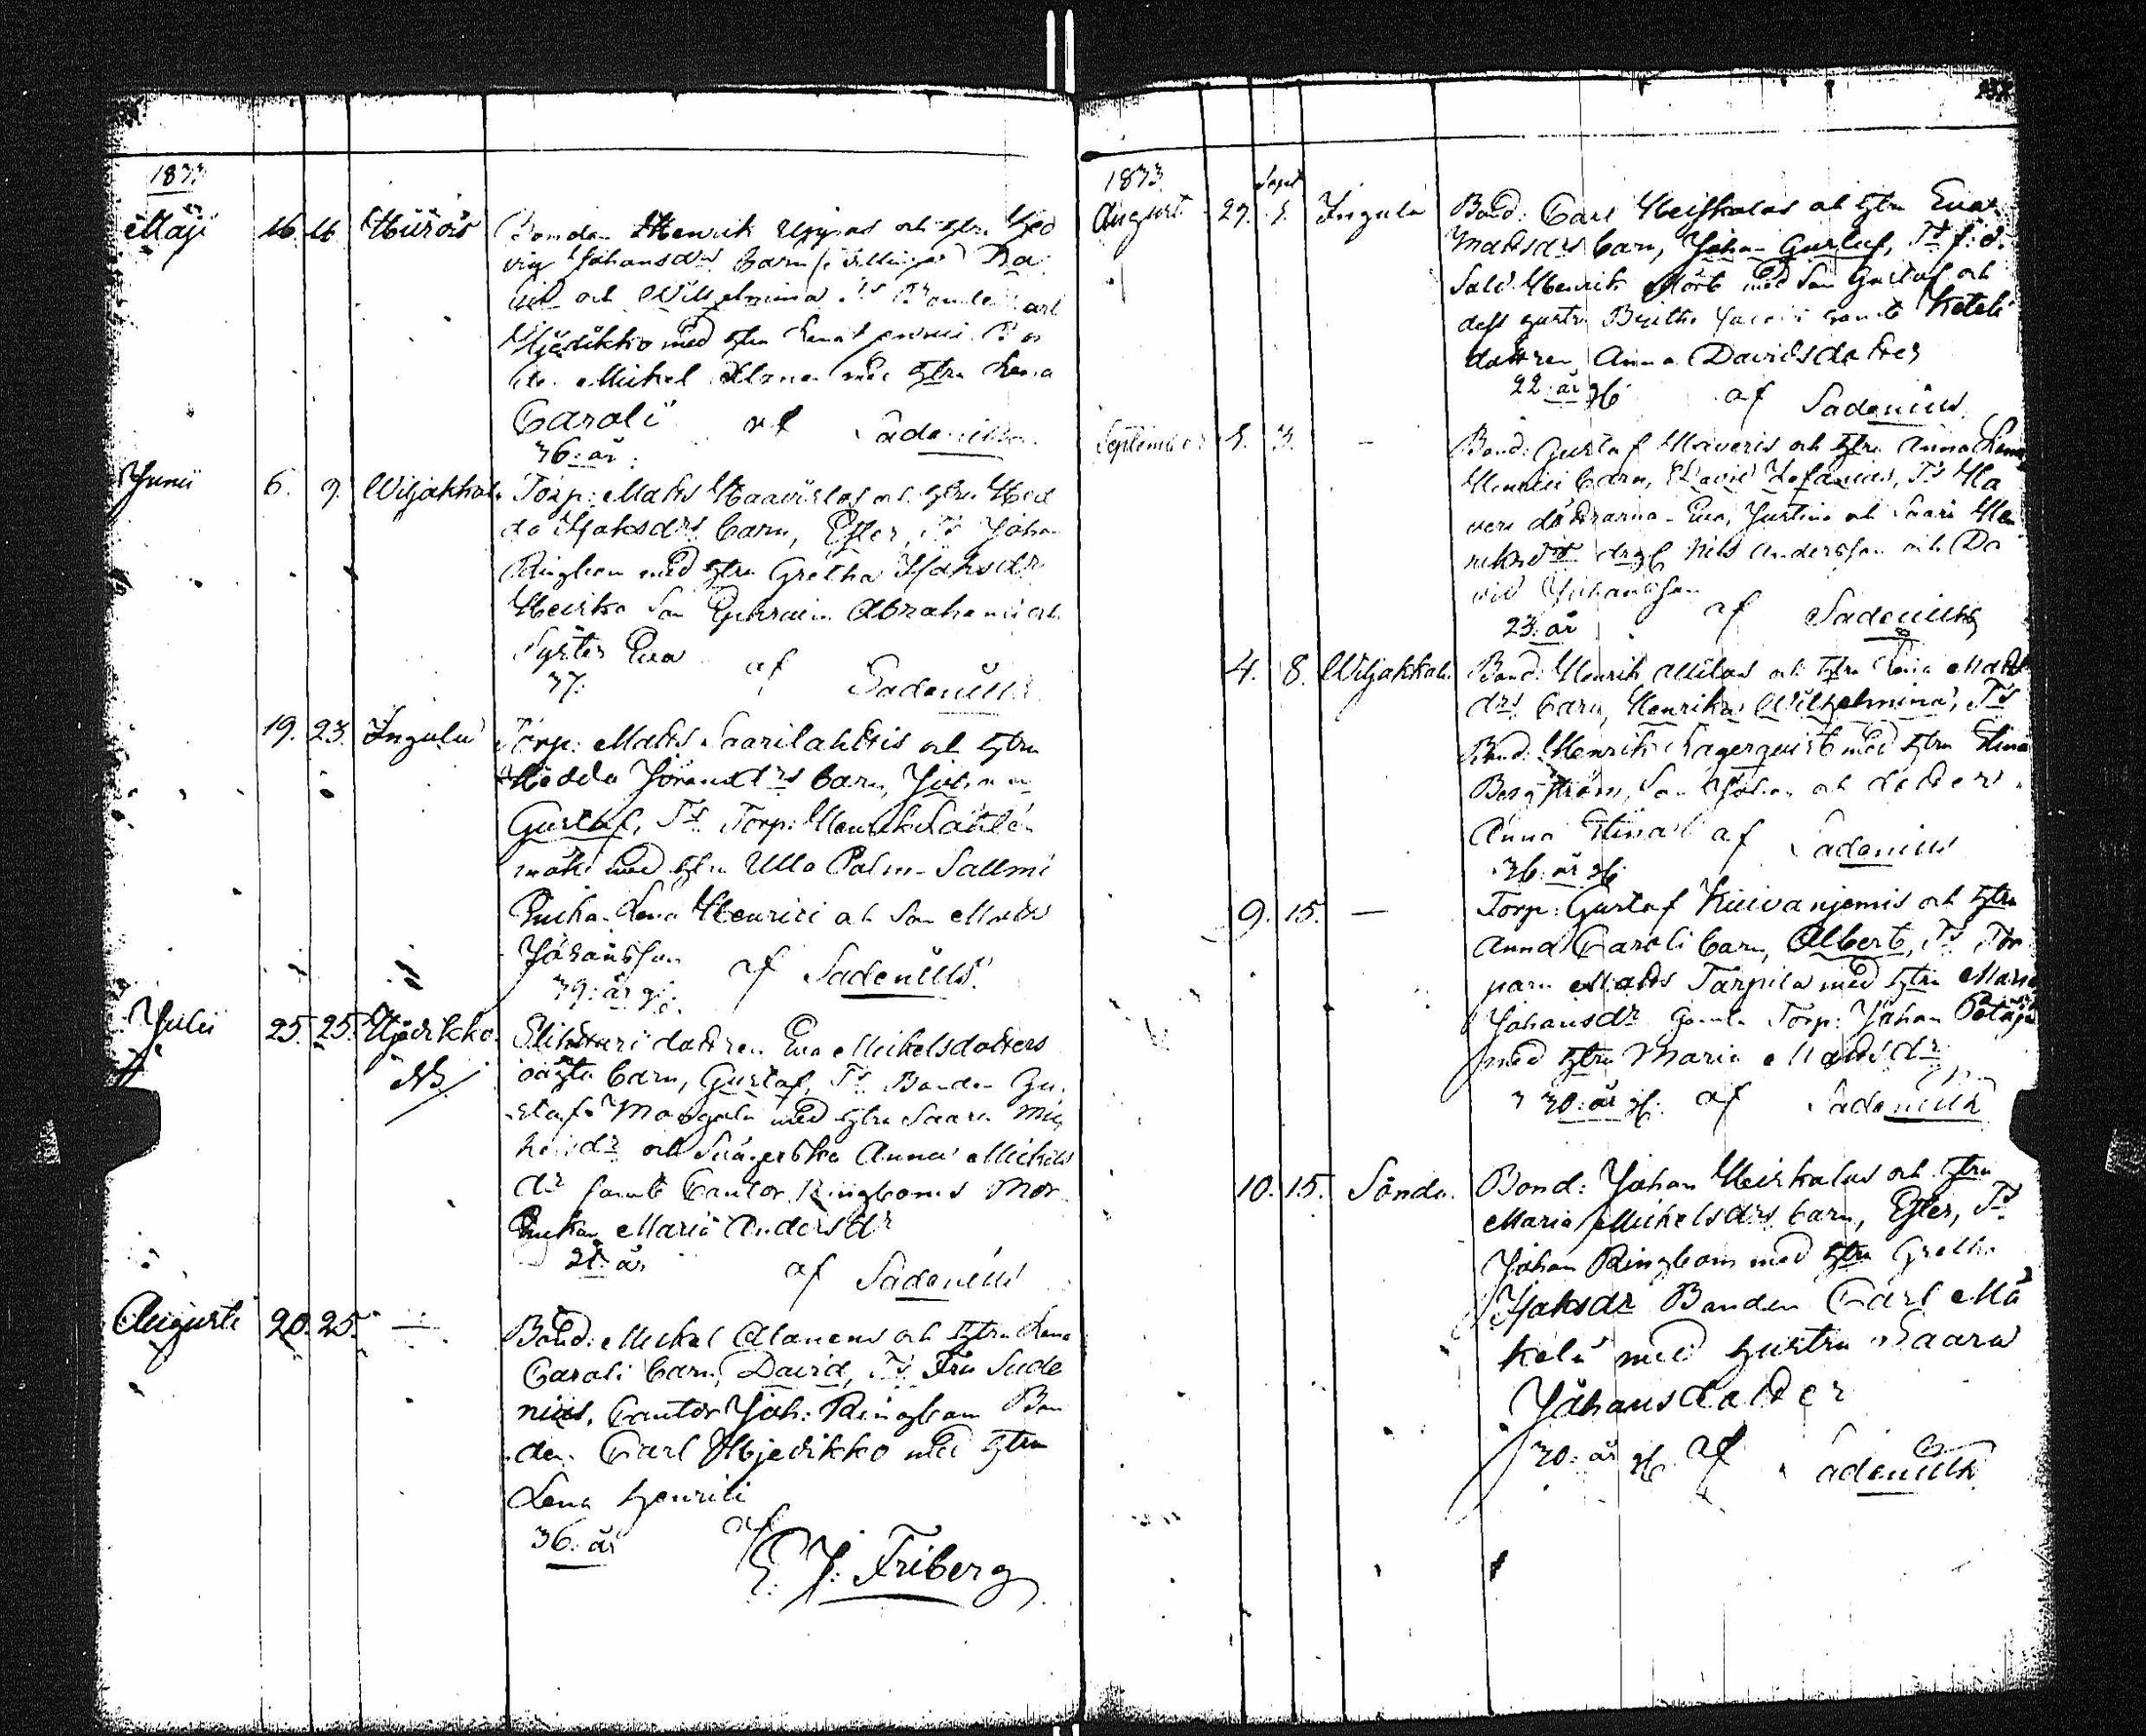 1833
Maji 16. 16. Hiirois Bonden Henrik Uppas och hstru Hed
vig Johansdrs barn (: tvillingar) Da
vid och Wilhelmina Ts Bonden Carl
Hjedikko med hstru Lena Henrici Bon
den Mickel Alanen med hstru Lena
Caroli af Sadenius
36: år:
Junii 6. 9. Wiljakkala Torp: Matts Haavistos och hstru Hed
da Isaksdrs barn, Ester, Ts Johan
Ringbom med hstru Gretha Isaksdr
Heiska Son Ephraim Abrahami och
Syster Eva af Sadenius
37:
19. 23. Ingula Torp: Matts Saarilahtis och hstru
Hedda Jöransdrs barn, Johan
Gustaf, Ts Torp: Henrik
mäki med hstru Ulla Palm-Sallmi
Enkan Lena Henrici och Son Matts
Johansson af Sadenius
39: år gl:
Julii 25. 25. Hjedikko. dottren Eva Mickelsdotters
NB oäkta barn, Gustaf, Ts Bonden Gu
staf med hstru Saara Mic
kelsdr och Svägerska Anna Mickels
dr samt Cantor Ringboms Mor
Enkan Maria Andersdr
21: år af Sadenius
Augusti 20. 25. — Bond: Mickel Alanens och hstru Lena
Caroli barn, David, Ts Fru Sade
nius, Cantor Joh: Ringbom Bon
den Carl Hjedikko med hstru
Lena Henrici
36: år af
E. J: Friberg
1833
Sept
Augusti 29. 1. Ingula Bond: Carl Heiskalas och hstru Eva
Mattsdrs barn, Johan Gustaf, Ts f:d:
Sold: Henrik Mört med Son Gustaf och
dess hustru Britha samt Ketola
dottren Anna Davidsdotter
22: år gl: af Sadenius
September 1. 3. — Bond: Gustaf Haveris och hstru Anna Lena
Henrici barn, David Zefanias, Ts Ha
veri döttrarna Eva, Justina och Saara Hen
riksdr drgl Nils Andersson och Da
vid Johansson
23: år af Sadenius
4. 8. Wiljakkala. Bond: Henrik och hstru Lena Matts
drs barn, Henrika Wilhelmina, Ts
Bond: Henrik Lagerquist med hstru Stina
Bergström, Son Johan och dotter
Anna Stina af Sadenius
36: år gl:
9. 15. — Torp: Gustaf Kuivanjemis och hstru
Anna Caroli barn, Albert, Ts Tor
parn Matts Tarpila med hstru Maria
Johansdr Gamla Torp: Johan Petäjä
med hstru Maria Mattsdr
30: år gl: af Sadenius
10. 15. Sonda. Bond: Johan Heiskalas och hstru
Maria Mickelsdrs barn, Ester, Ts
Johan Ringbom med hstru Gretha
Isaksdr Bonden Carl Mä
kelä med hustru Saara
Johansdotter
30: år gl: af Sadenius